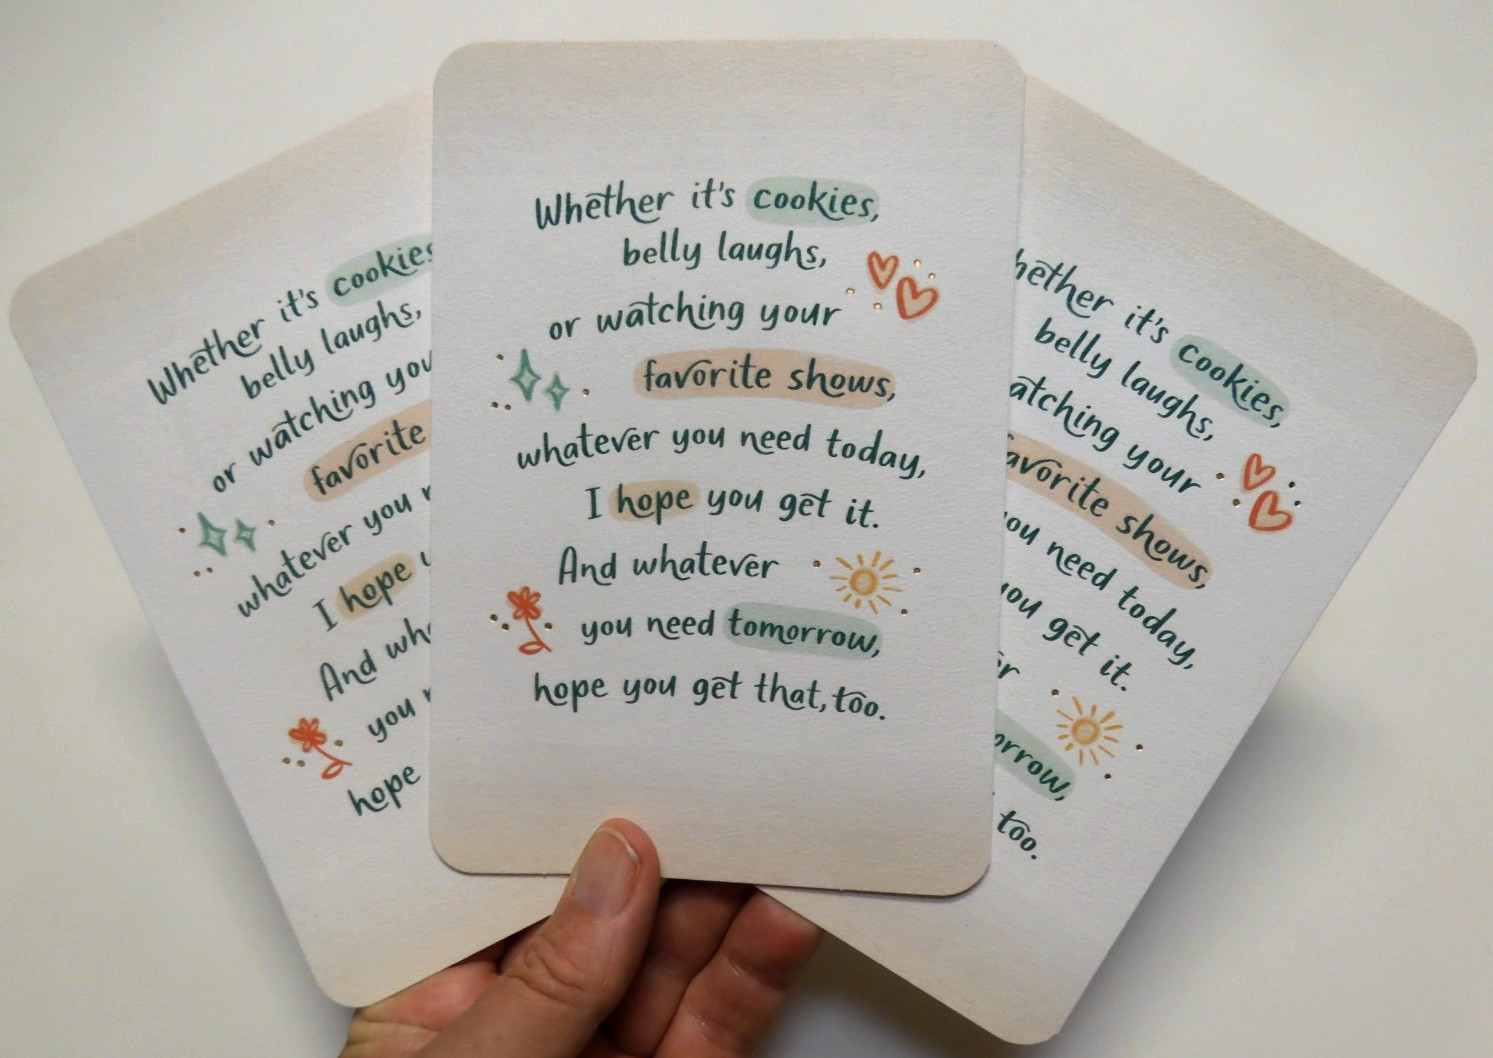 Whether it's cookies,
belly laughs,
or watching your
favorite shows,
whatever you need today,
I hope you get it.
And whatever
you need tomorrow,
hope you get that, too.
Whether it's cookies
belly laughs,
or watching you
favorite
whatever you
I hope
And
you
hope
hether it's cookies,
belly laughs,
atching your
avorite shows,
you need today,
you get it.
er
orrow,
too.